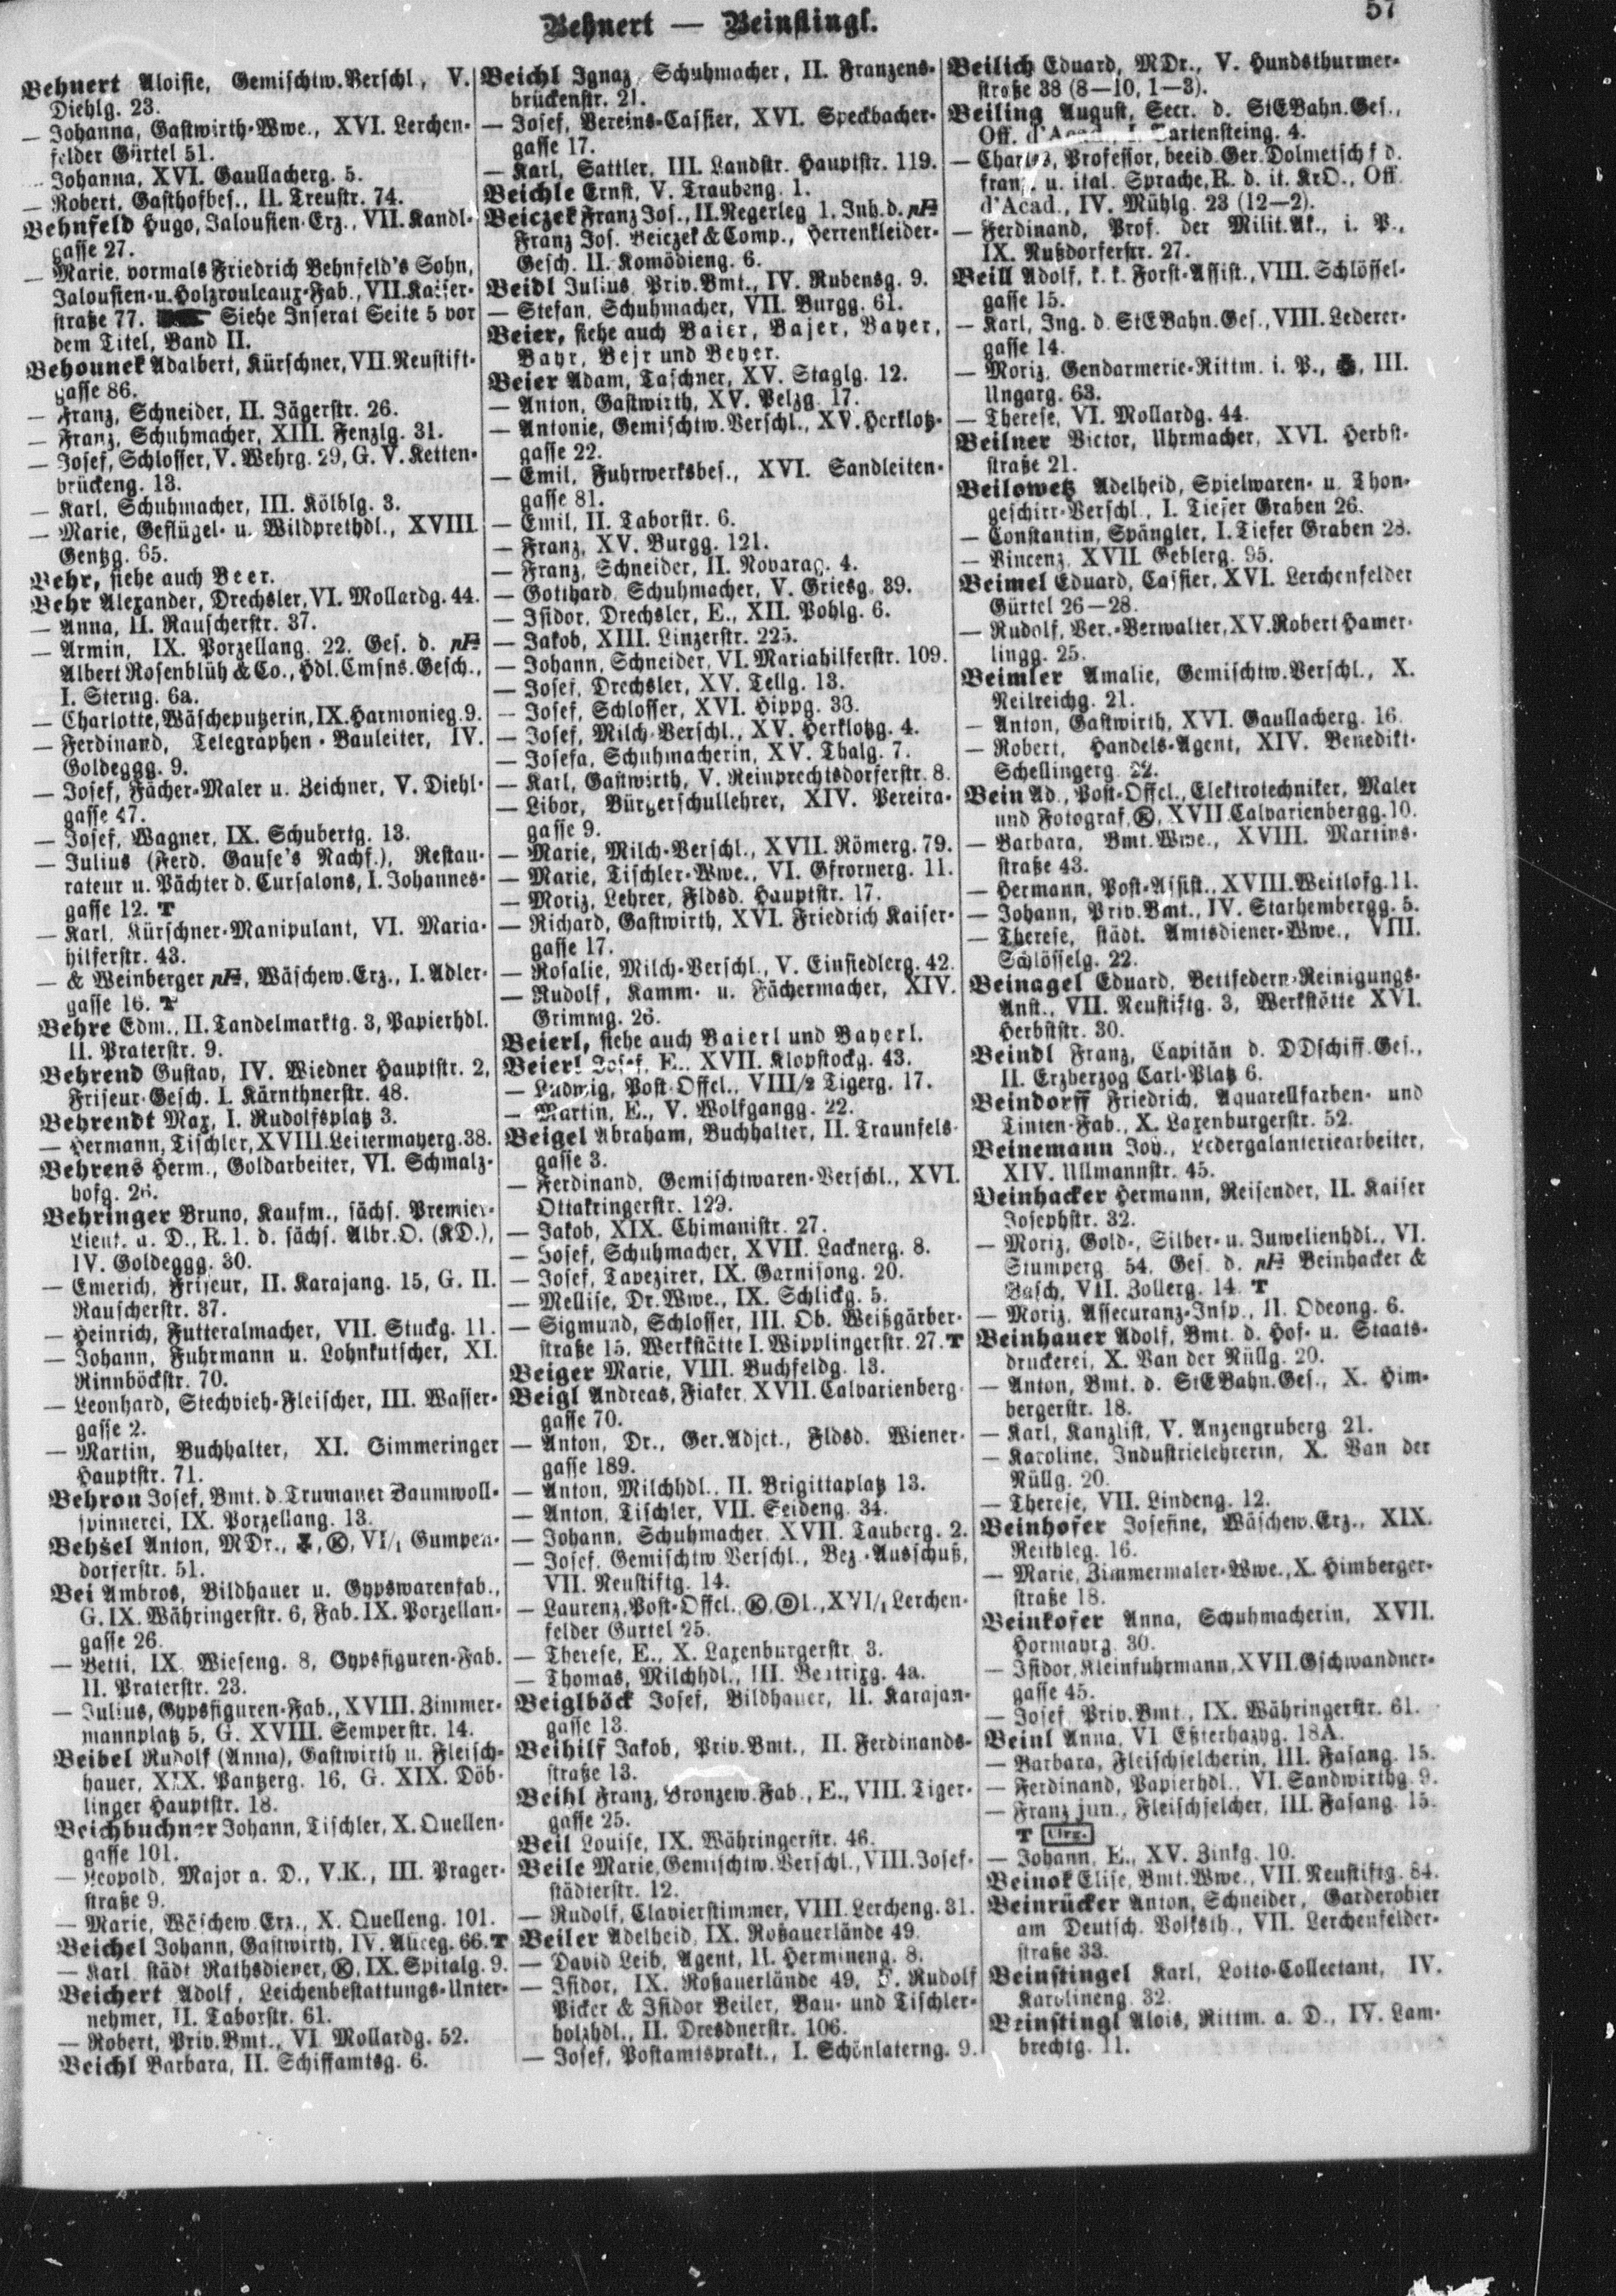 57
Behnert — Beinstingl.
Behnert Aloisie, Gemischtw.Verschl, V.
Diehlg. 23.
— Johanna, Gastwirth-Wwe., XVI. Lerchen-
felder Gürtel 51.
— Johanna, XVI. Gaullacherg. 5.
— Robert, Gasthofbes., II. Treustr. 74.
Behnfeld Hugo, Jalousien-Erz., VII. Kandl-
gasse 27.
— Marie, vormals Friedrich Behnfeld's Sohn,
Jalousien-u.Holzrouleaux-Fab., VII.Kaiser-
straße 77. Siehe Inserat Seite 5 vor
dem Titel, Band II.
Behounek Adalbert, Kürschner, VII.Neustift-
gasse 86.
— Franz, Schneider, II. Jägerstr. 26.
— Franz, Schuhmacher, XIII. Fenzlg. 31.
— Josef, Schlosser, V. Wehrg. 29, G. V. Ketten-
brückeng. 13.
— Karl, Schuhmacher, III. Kölblg. 3.
— Marie, Geflügel- u. Wildprethdl., XVIII.
Gentzg. 65.
Behr, siehe auch Beer.
Behr Alexander, Drechsler, VI. Mollardg. 44.
— Anna, II. Rauscherstr. 37.
— Armin, IX. Porzellang. 22. Ges. d. pF
Albert Rosenblüh & Co., Hdl.Cmsns.Gesch.,
I. Sterng. 6a.
— Charlotte, Wäscheputzerin, IX.Harmonieg.9.
— Ferdinand, Telegraphen-Bauleiter, IV.
Goldeggg. 9.
— Josef, Fächer-Maler u. Zeichner, V. Diehl-
gasse 47.
— Josef, Wagner, IX. Schubertg. 13.
— Julius (Ferd. Gause's Nachf.), Restau-
rateur u. Pächter d. Cursalons, I. Johannes-
gasse 12. T
— Karl, Kürschner-Manipulant, VI. Maria-
hilferstr. 43.
— & Weinberger pF, Wäschew.Erz., I. Adler-
gasse 16. T
Behre Edm., II. Tandelmarktg. 3, Papierhdl.
II. Praterstr. 9.
Behrend Gustav, IV. Wiedner Hauptstr. 2,
Friseur-Gesch. I. Kärnthnerstr. 48.
Behrendt Max, I. Rudolfsplatz 3.
— Hermann, Tischler, XVIII.Leitermayerg.38.
Behrens Herm., Goldarbeiter, VI. Schmalz-
hofg. 26.
Behringer Bruno, Kaufm., sächs. Premier-
Lieut. a. D., R.1. d. sächs. Albr.O. (KD.),
IV. Goldeggg. 30.
— Emerich, Friseur, II. Karajang. 15, G. II.
Rauscherstr. 37.
— Heinrich, Futteralmacher, VII. Stuckg. 11.
— Johann, Fuhrmann u. Lohnkutscher, XI.
Rinnböckstr. 70.
— Leonhard, Stechvieh-Fleischer, III. Wasser-
gasse 2.
— Martin, Buchhalter, XI. Simmeringer
Hauptstr. 71.
Behron Josef, Bmt. d. Trumauer Baumwoll-
spinnerei, IX. Porzellang. 13.
Behsel Anton, MDr., K, VI/1 Gumpen-
dorferstr. 51.
Bei Ambros, Bildhauer u. Gypswarenfab.,
G. IX. Währingerstr. 6, Fab. IX. Porzellan-
gasse 26.
— Betti, IX. Wieseng. 8, Gypsfiguren-Fab.
II. Praterstr. 23.
— Julius, Gypsfiguren-Fab., XVIII. Zimmer-
mannplatz 5, G. XVIII. Semperstr. 14.
Beibel Rudolf (Anna), Gastwirth u. Fleisch-
hauer, XIX. Pantzerg. 16, G. XIX. Döb-
linger Hauptstr. 18.
Beichbuchner Johann, Tischler, X. Quellen-
gasse 101.
— Leopold, Major a. D., V.K., III. Prager-
straße 9.
— Marie, Wäschew.Erz., X. Quelleng. 101.
Beichel Johann, Gastwirth, IV. Aliceg. 66. T
— Karl, städt. Rathsdiener, K, IX. Spitalg. 9.
Beichert Adolf, Leichenbestattungs-Unter-
nehmer, II. Taborstr. 61.
— Robert, Priv.Bmt., VI. Mollardg. 52.
Beichl Barbara, II. Schiffamtsg. 6.
Beichl Ignaz, Schuhmacher, II. Franzens-
brückenstr. 21.
— Josef, Vereins-Cassier, XVI. Speckbacher-
gasse 17.
— Karl, Sattler, III. Landstr. Hauptstr. 119.
Beichle Ernst, V. Traubeng. 1.
Beiczek Franz Jos., II. Negerleg. 1. Inh. d. pF
Franz Jos. Beiczek & Comp., Herrenkleider-
Gesch. II. Komödieng. 6.
Beidl Julius, Priv.Bmt., IV. Rubensg. 9.
— Stefan, Schuhmacher, VII. Burgg. 61.
Beier, siehe auch Baier, Bajer, Bayer,
Bayr, Bejr und Beyer.
Beier Adam, Taschner, XV. Staglg. 12.
— Anton, Gastwirth, XV. Pelzg. 17.
— Antonie, Gemischtw.Verschl., XV.Herklotz-
gasse 22.
— Emil, Fuhrwerksbes., XVI. Sandleiten-
gasse 81.
— Emil, II. Taborstr. 6.
— Franz, XV. Burgg. 121.
— Franz, Schneider, II. Novarag. 4.
— Gotthard, Schuhmacher, V. Griesg. 39.
— Isidor, Drechsler, E., XII. Pohlg. 6.
— Jakob, XIII. Linzerstr. 225.
— Johann, Schneider, VI. Mariahilferstr. 109.
— Josef, Drechsler, XV. Tellg. 13.
— Josef, Schlosser, XVI. Hippg. 33.
— Josef, Milch-Verschl., XV. Herklotzg. 4.
— Josefa, Schuhmacherin, XV. Thalg. 7.
— Karl, Gastwirth, V. Reinprechtsdorferstr. 8.
— Libor, Bürgerschullehrer, XIV. Pereira-
gasse 9.
— Marie, Milch-Verschl., XVII. Römerg. 79.
— Marie, Tischler-Wwe., VI. Gfrornerg. 11.
— Moriz, Lehrer, Fldsd. Hauptstr. 17.
— Richard, Gastwirth, XVI. Friedrich Kaiser-
gasse 17.
— Rosalie, Milch-Verschl., V. Einsiedlerg. 42.
— Rudolf, Kamm- u. Fächermacher, XIV.
Grimmg. 26.
Beierl, siehe auch Baierl und Bayerl.
Beierl Josef, E., XVII. Klopstockg. 43.
— Ludwig, Post-Offcl., VIII/2 Tigerg. 17.
— Martin, E., V. Wolfgangg. 22.
Beigel Abraham, Buchhalter, II. Traunfels-
gasse 3.
— Ferdinand, Gemischtwaren-Verschl., XVI.
Ottakringerstr. 129.
— Jakob, XIX. Chimanistr. 27.
— Josef, Schuhmacher, XVII. Lacknerg. 8.
— Josef, Tapezirer, IX. Garnisong. 20.
— Mellise, Dr.Wwe., IX. Schlickg. 5.
— Sigmund, Schlosser, III. Ob. Weißgärber-
straße 15, Werkstätte I. Wipplingerstr. 27. T
Beiger Marie, VIII. Buchfeldg. 13.
Beigl Andreas, Fiaker, XVII. Calvarienberg-
gasse 70.
— Anton, Dr., Ger.Adjct., Fldsd. Wiener-
gasse 189.
— Anton, Milchhdl., II. Brigittaplatz 13.
— Anton, Tischler, VII. Seideng. 34.
— Johann, Schuhmacher, XVII. Tauberg. 2.
— Josef, Gemischtw.Verschl., Bez.-Ausschuß,
VII. Neustiftg. 14.
— Laurenz, Post-Offcl., K, D 1., XVI/1 Lerchen-
felder Gürtel 25.
— Therese, E., X. Laxenburgerstr. 3.
— Thomas, Milchhdl., III. Beatrixg. 4a.
Beiglböck Josef, Bildhauer, II. Karajan-
gasse 13.
Beihilf Jakob, Priv.Bmt., II. Ferdinands-
straße 13.
Beihl Franz, Bronzew.Fab., E., VIII. Tiger-
gasse 25.
Beil Louise, IX. Währingerstr. 46.
Beile Marie, Gemischtw.Verschl., VIII. Josef-
städterstr. 12.
— Rudolf, Clavierstimmer, VIII. Lercheng. 31.
Beiler Adelheid, IX. Roßauerlände 49.
— David Leib, Agent, II. Hermineng. 8.
— Isidor, IX. Roßauerlände 49, F. Rudolf
Picker & Isidor Beiler, Bau- und Tischler-
holzhdl., II. Dresdnerstr. 106.
— Josef, Postamtsprakt., I. Schönlaterng. 9.
Beilich Eduard, MDr., V. Hundsthurmer-
straße 38 (8—10, 1—3).
Beiling August, Secr. d. StEBahn.Ges.,
Off. d'Acad., I. Gartensteing. 4.
— Charles, Professor, beeid.Ger.Dolmetsch f. d.
franz. u. ital. Sprache, R. d. it. KrO., Off.
d'Acad., IV. Mühlg. 23 (12—2).
— Ferdinand, Prof. der Milit.Ak., i. P.,
IX. Nußdorferstr. 27.
Beill Adolf, k. k. Forst-Assist., VIII. Schlössel-
gasse 15.
— Karl, Ing. d. StEBahn.Ges., VIII. Lederer-
gasse 14.
— Moriz, Gendarmerie-Rittm. i. P., III.
Ungarg. 63.
— Therese, VI. Mollardg. 44.
Beilner Victor, Uhrmacher, XVI. Herbst-
straße 21.
Beilowetz Adelheid, Spielwaren- u. Thon-
geschirr-Verschl., I. Tiefer Graben 26.
— Constantin, Spängler, I. Tiefer Graben 28.
— Vincenz, XVII. Geblerg. 95.
Beimel Eduard, Cassier, XVI. Lerchenfelder
Gürtel 26—28.
— Rudolf, Ver.-Verwalter, XV.Robert Hamer-
lingg. 25.
Beimler Amalie, Gemischtw.Verschl., X.
Neilreichg. 21.
— Anton, Gastwirth, XVI. Gaullacherg. 16.
— Robert, Handels-Agent, XIV. Benedikt-
Schellingerg. 22.
Bein Ad., Post-Offcl., Elektrotechniker, Maler
und Fotograf, K, XVII.Calvarienbergg.10.
— Barbara, Bmt.Wwe., XVIII. Martins-
straße 43.
— Hermann, Post-Assist., XVIII.Weitlofg.11.
— Johann, Priv.Bmt., IV. Starhembergg. 5.
— Therese, städt. Amtsdiener-Wwe., VIII.
Schlösselg. 22.
Beinagel Eduard, Bettfedern-Reinigungs-
Anst., VII. Neustiftg. 3, Werkstätte XVI.
Herbststr. 30.
Beindl Franz, Capitän d. DDschiff.Ges.,
II. Erzherzog Carl-Platz 6.
Beindorff Friedrich, Aquarellfarben- und
Tinten-Fab., X. Laxenburgerstr. 52.
Beinemann Joh., Ledergalanteriearbeiter,
XIV. Ullmannstr. 45.
Beinhacker Hermann, Reisender, II. Kaiser
Josephstr. 32.
— Moriz, Gold-, Silber- u. Juwelienhdl., VI.
Stumperg. 54, Ges. d. pF Beinhacker &
Basch, VII. Zollerg. 14. T
— Moriz, Assecuranz-Insp., II. Odeong. 6.
Beinhauer Adolf, Bmt. d. Hof- u. Staats-
druckerei, X. Van der Nüllg. 20.
— Anton, Bmt. d. StEBahn.Ges., X. Him-
bergerstr. 18.
— Karl, Kanzlist, V. Anzengruberg. 21.
— Karoline, Industrielehrerin, X. Van der
Nüllg. 20.
— Therese, VII. Lindeng. 12.
Beinhofer Josefine, Wäschew.Erz., XIX.
Reithleg. 16.
— Marie, Zimmermaler-Wwe., X. Himberger-
straße 18.
Beinkofer Anna, Schuhmacherin, XVII.
Hormayrg. 30.
— Isidor, Kleinfuhrmann, XVII.Gschwandner-
gasse 45.
— Josef, Priv.Bmt., IX. Währingerstr. 61.
Beinl Anna, VI. Eßterhazyg. 18A.
— Barbara, Fleischselcherin, III. Fasang. 15.
— Ferdinand, Papierhdl., VI. Sandwirthg. 9.
— Franz jun., Fleischselcher, III. Fasang. 15.
T
— Johann, E., XV. Zinkg. 10.
Beinok Elise, Bmt.Wwe., VII. Neustiftg. 84.
Beinrücker Anton, Schneider, Garderobier
am Deutsch. Volksth., VII. Lerchenfelder-
straße 33.
Beinstingel Karl, Lotto-Collectant, IV.
Karolineng. 32.
Beinstingl Alois, Rittm. a. D., IV. Lam-
brechtg. 11.